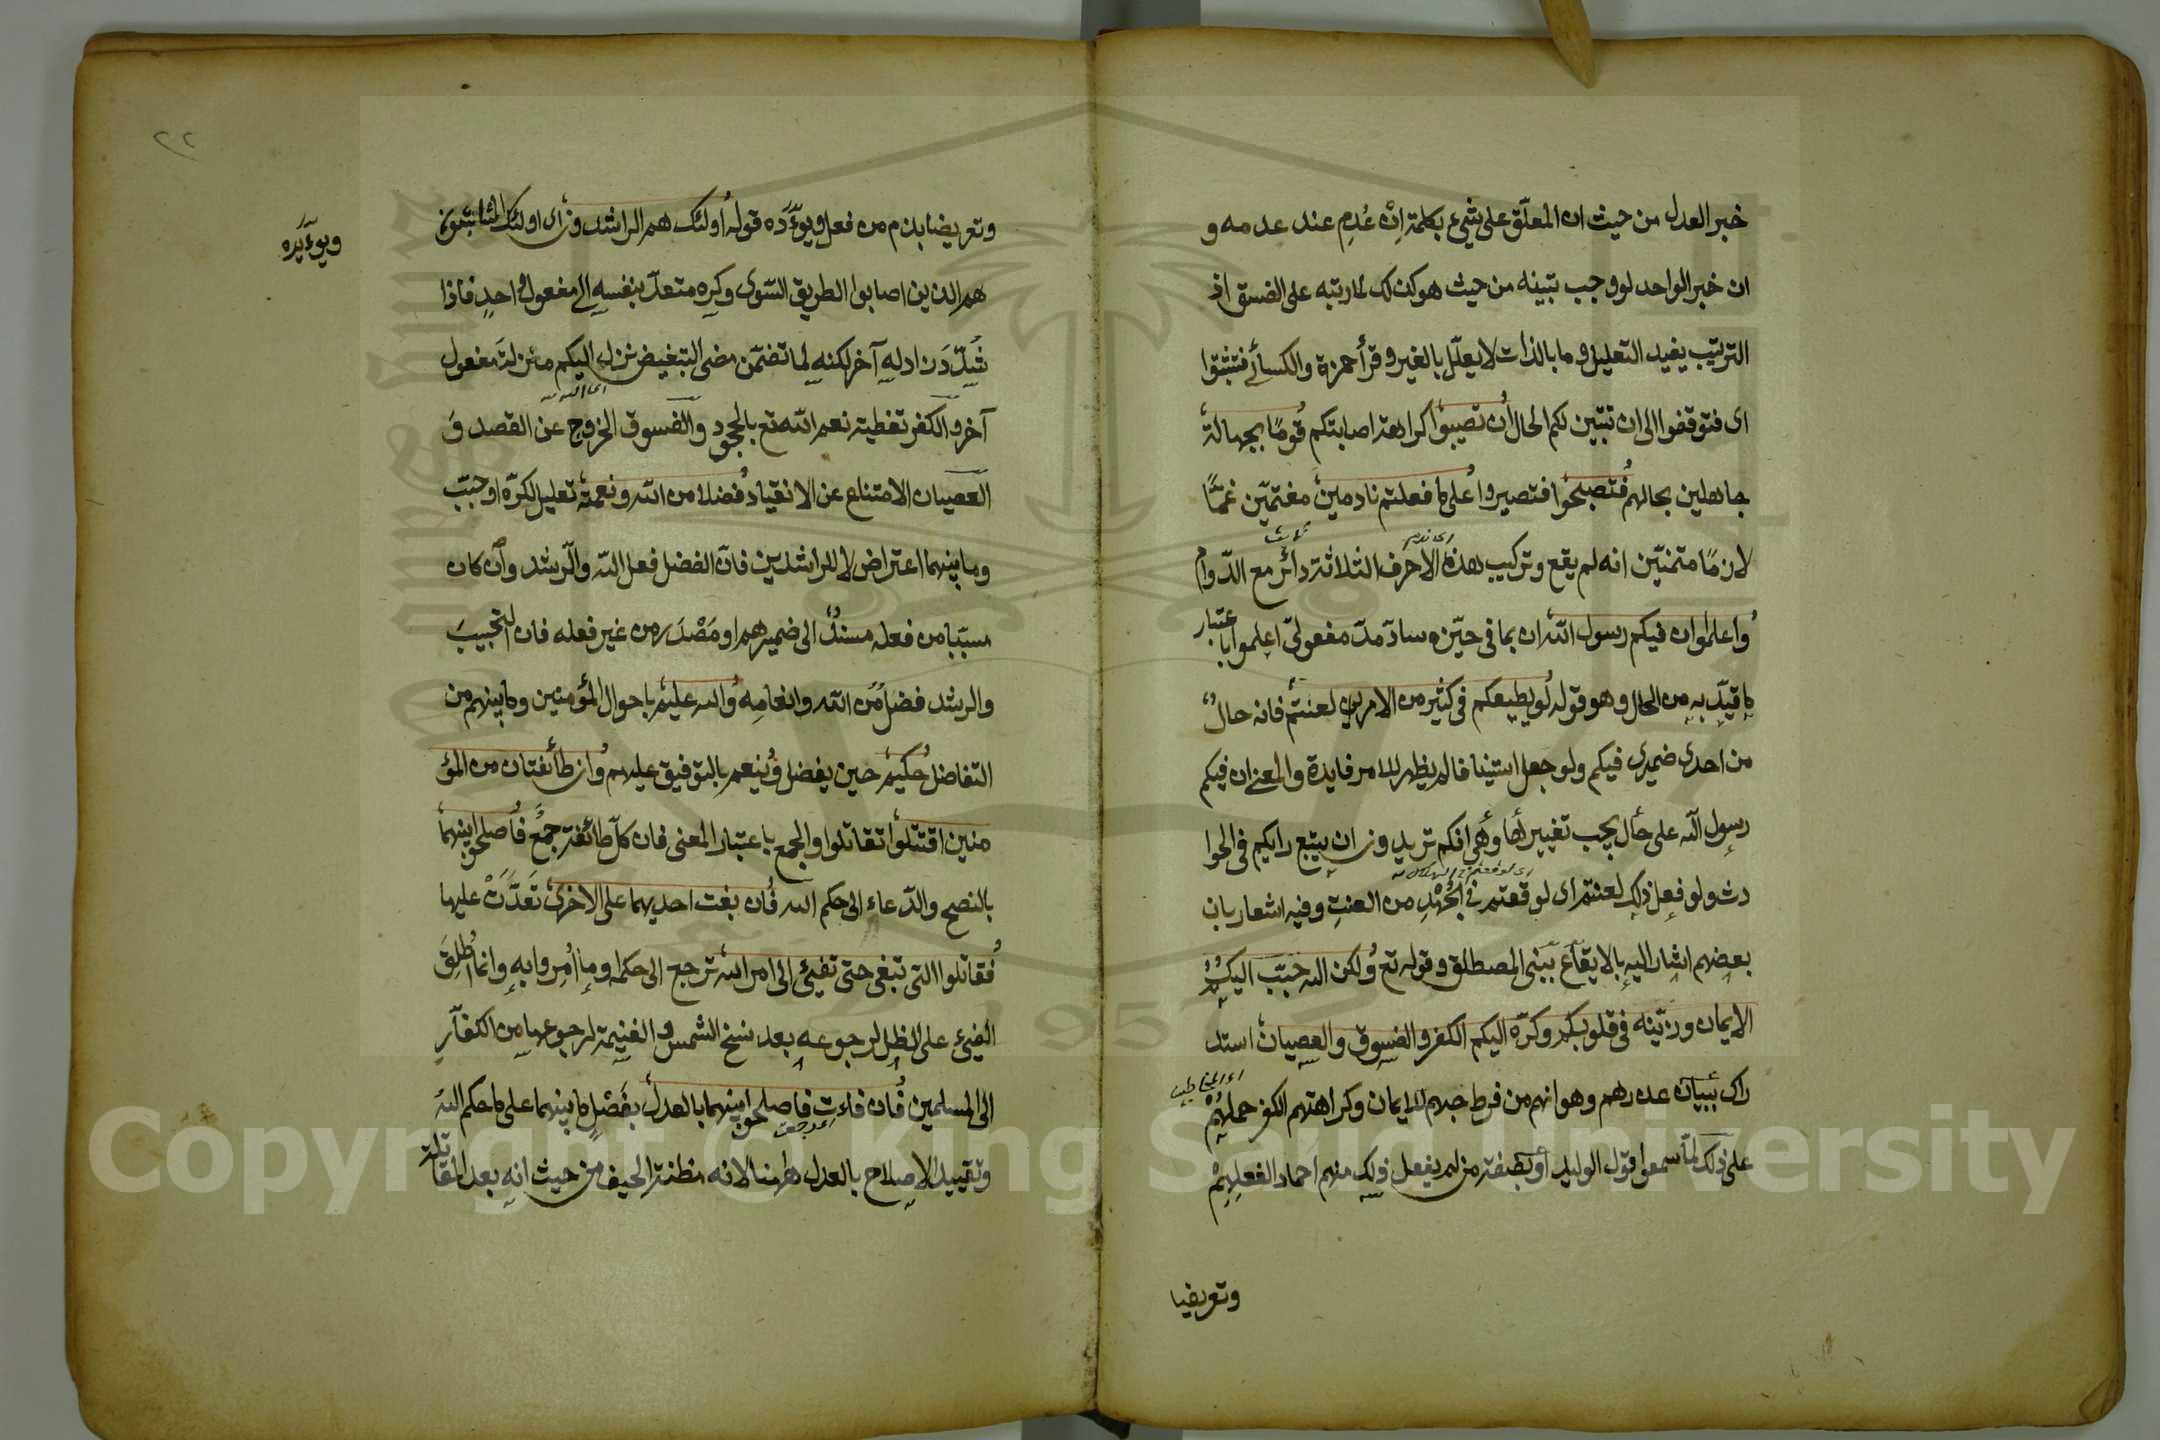 خبر العدل من حيث ان المعلّق على شيء بكلمة اِنْ عُدِم عند عدمه و
ان خبر الواحد لو وجب تبينه من حيث هو كذلك لما رتبه على الفسق اذ
الترتيب يفيد التعليل وما بالذات لا يعلّل بالغير وقرأ حمزة والكسائي فتثبتوا
اى فتوقفوا الى ان تبيّن لكم الحال ان تصيبوا كراهة اصابتكم قومًا بجهالة
جاهلين بحالهم فتصبحوا فتصيروا على ما فعلتم نادمين مغتمّين غمًّا
لازمًا متمنّين انه لم يقع وتركيب هذه الاحرف الثلاثة دائر مع الدّوام
واعلموا ان فيكم رسول الله ان بما فى حيّزه سادّ مدّ مفعولىّ اعلموا باعتبار
ما قيّد به من الحال وهو قوله لو يطيعكم فى كثير من الامر لعنتم فانه حال
من احدى ضميرى فيكم ولو جعل استينافا لم يظهر للامر فايدة والمعنى ان فيكم
رسول الله على حال يجب تغييرها وهى انكم تريدون ان يتبع رايكم فى الحوا
دث ولو فعل ذلك لعنتم اى لوقعتم فى الجُهْدِ من العنت وفيه اشعار بان
بعضهم اشار اليه بالايقاع ببنى المصطلق وقوله تع ولكن الله حبّب اليكم
الايمان وزيّنه فى قلوبكم وكرّه اليكم الكفر والفسوق والعصيان استد
راك ببيان عذرهم وهو انهم من فرط حبهم للايمان وكراهتهم الكفر حملهم
على ذلك لمّا سمعوا قول الوليد أو بصفة من لم يفعل ذلك منهم احمادا لفعلهم
وتعريضا
٢٢
وتعريضا بذم من فعل ويؤَدّه قوله اولئك هم الراشدون اى اولئك المثابتون
ويؤيّده
هم الذين اصابوا الطريق السّوى وكره متعدّ بنفسه الى مفعول واحد فاذا
شُدّدَ زاد له آخر لكنه لما تضمّن معنى التبغيض نزل اليكم منزلة مفعول
آخر والكفر تغطية نعم الله تع بالجحود والفسوق الخروج عن القصد و
العصيان الامتناع عن الانقياد فضلا من الله ونعمة تعليل لكرّه او حبّب
وما بينهما اعتراض لا للراشدين فانّ الفضل فعل الله والرشد وان كان
مسبّبا من فعله مسندٌ الى ضميرهم او مَصْدر من غير فعله فان التحبيب
والرشد فضل من الله وانعامه والله عليم باحوال المؤمنين وما بينهم من
التفاضل حكيم حين يفضل وينعم بالتوفيق عليهم وان طائفتان من المؤ
منين اقتتلوا تقاتلوا والجمع باعتبار المعنى فان كلّ طائفة جمعٌ فاصلحوا بينهما
بالنصح والدّعاء الى حكم الله فان بغت احديهما على الاخرى تَعَدَّتْ عليها
فقاتلوا التى تبغى حتى تفئ الى امر الله ترجع الى حكمه او ما اُمِروا به وانما اُطلِقَ
الفئ على الظل لرجوعه بعد نسخ الشمس والغنيمة لرجوعها من الكفّار
الى المسلمين فان فاءت فاصلحوا بينهما بالعدل بفَصْلِ ما بينهما على ما حكم الله
وتقييد الاصلاح بالعدل ههنا لانه مظنة الحيف من حيث انه بعد المقاتلة